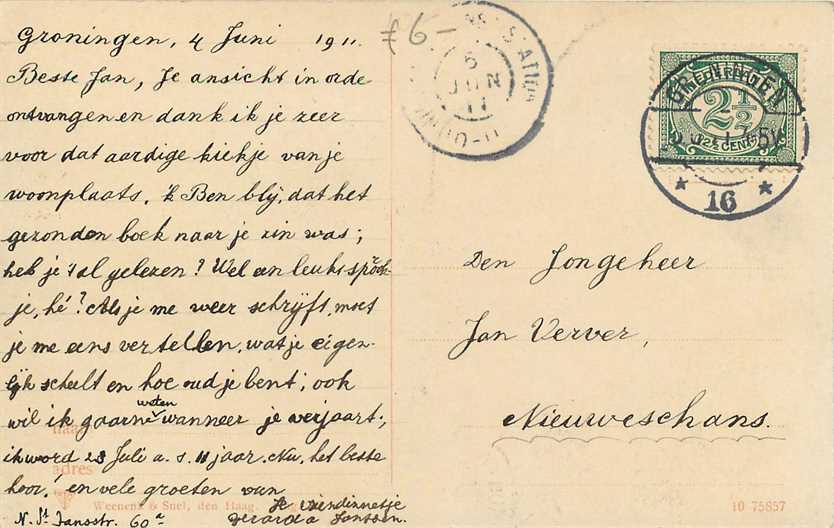 Groningen, 4 Juni 1911.
Beste Jan, Je ansicht in orde
ontvangen en dank ik je zeer
voor dat aardige kiekje van je
woonplaats. 'k Ben blij, dat het
gezonden boek naar je zin was;
heb je 't al gelezen? Wel een leuk sprook-
je, hé? Als je me weer schrijft, moet
je me eens vertellen, wat je eigen-
lijk scheelt en hoe oud je bent; ook
wil ik gaarne weten wanneer je verjaart;
ik word 23 Juli a.s. 11 jaar. Nu, het beste
hoor! en vele groeten van
Je vriendinnetje
Gerarda Janssen.
N. St. Jansstr. 60a
adres
Weenenk & Snel, den Haag.
10 75857
6-
STATION
6
JUN
11
GRONINGEN
NEDERLAND
2½
2½ CENT
16
Den Jongeheer
Jan Verver,
Nieuweschans.